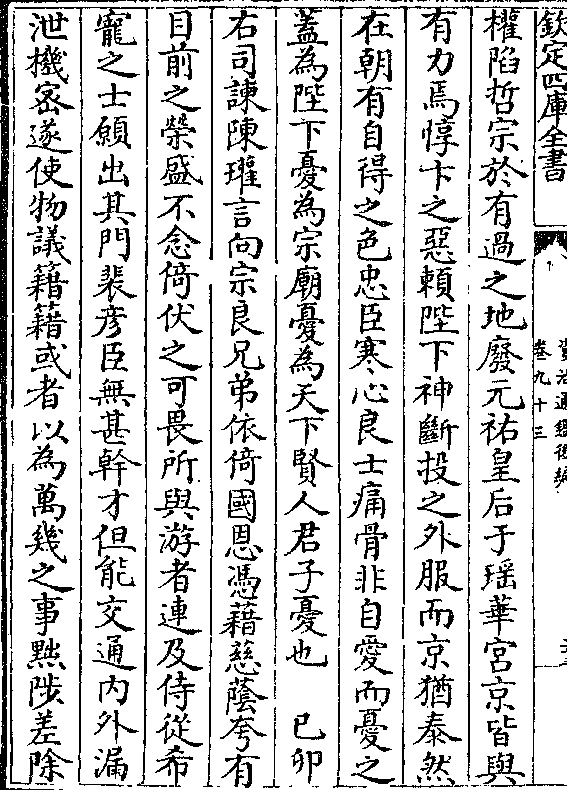 欽定四庫全書
資治通鑑後編
卷九十三
權陷哲宗於有過之地廢元祐皇后于瑶華宫京皆與
有力焉惇卞之惡賴陛下神斷投之外服而京猶泰然
在朝有自得之色忠臣寒心良士痛骨非自愛而憂之
蓋為陛下憂為宗廟憂為天下賢人君子憂也　己卯
右司諫陳瓘言向宗良兄弟依倚國恩憑藉慈蔭夸有
目前之榮盛不念倚伏之可畏所與游者連及侍從希
寵之士願出其門裴彦臣無甚幹才但能交通内外漏
泄機密遂使物議籍籍或者以為萬幾之事黜陟差除